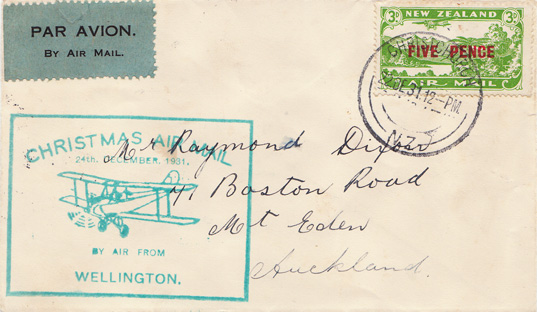 PAR AVION.
BY AIR MAIL.
3D NEW ZEALAND 3D
FIVE PENCE
AIR MAIL
CHRISTCHURCH
DE 31 12-PM
N.Z.
CHRISTMAS AIR MAIL
24th. DECEMBER, 1931.
BY AIR FROM
WELLINGTON.
Mr Raymond Dixon
41 Boston Road
Mt Eden
Auckland.